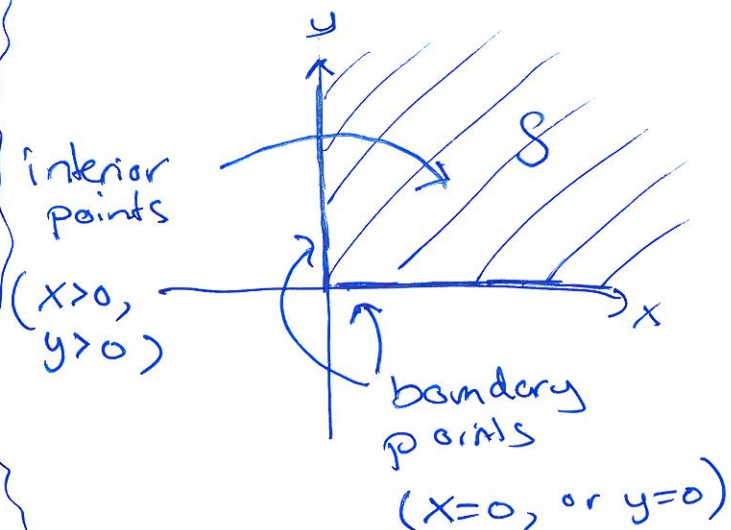 y
S
interior
points
(x>0,
y>0)
x
boundary
points
(x=0, or y=0)